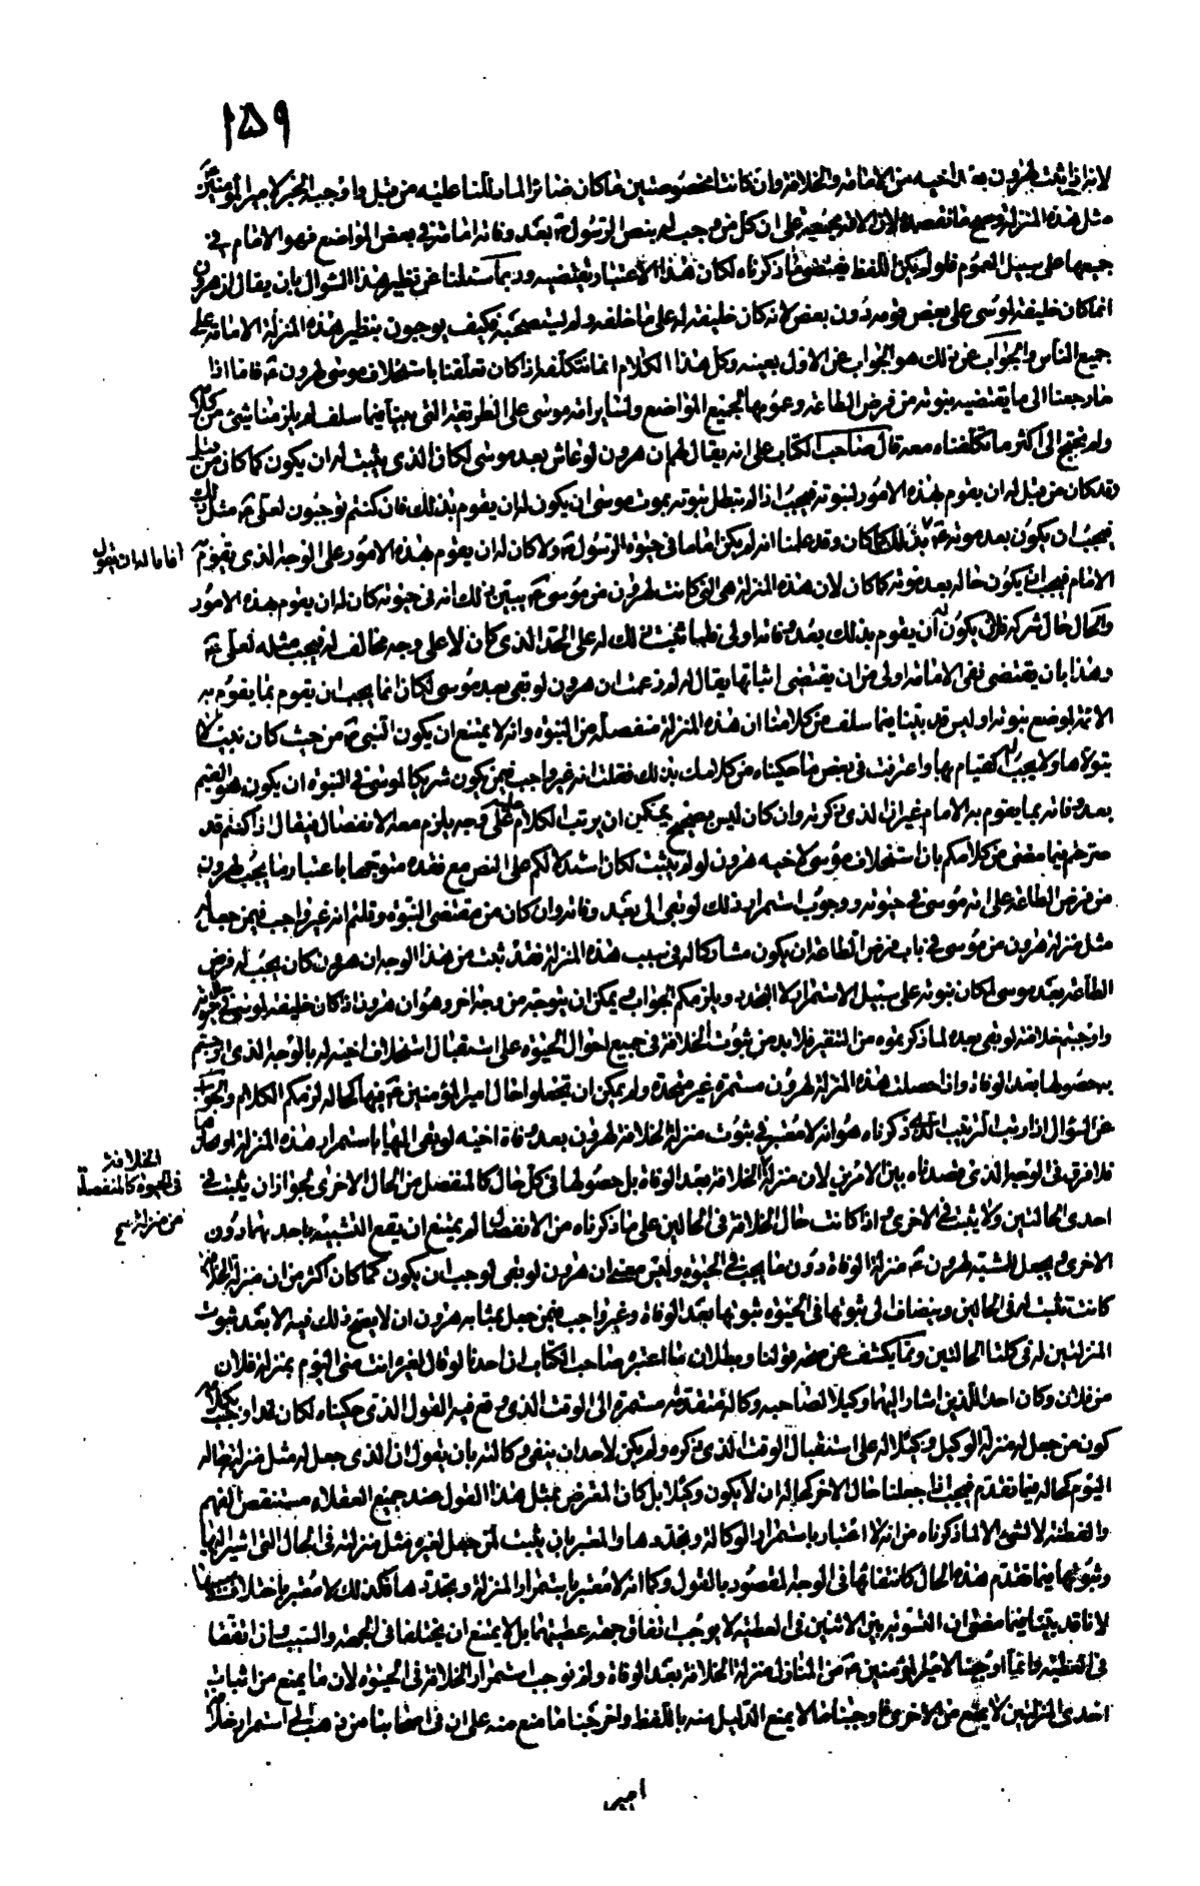 ١٥٩
لانه اذا ثبت لهرون بعد اخيه من الامامة والخلافة وان كانتا مخصوصتين ما كان ضائرا لما دللنا عليه من قبل واوجب الخبر لامير المؤمنين
مثل هذه المنزلة وصح ما نقصده لان الامة مجمعة على ان كل من وجب له بنص الرسول بعد وفاته امامة في بعض المواضع فهو الامام في
جميعها على سبيل العموم فلو لم يكن اللفظ يقتضي ما ذكرناه لكان هذا الاعتبار يقتضيه وربما سئلنا عن نظير هذا السؤال بان يقال ان هرون
انما كان خليفة لموسى على بعض قومه دون بعض لانه كان خليفة له على ما خلفه ولم يستصحبه فكيف يوجبون بنظير هذه المنزلة الامامة على
جميع الناس والجواب عن ذلك هو الجواب عن الاول بعينه وكل هذا الكلام انما نتكلفه اذا كان تعلقنا باستخلاف موسى لهرون فاما اذا
ما رجعنا الى ما يقتضيه نبوته من فرض الطاعة وعمومها لجميع المواضع ولشابرانه موسى على الطريقة التي بيناها فيما سلف لم يلزمنا شيء من
ولم نحتج الى اكثر ما تكلفناه معه قال صاحب الكتاب على انه يقال لهم ان هرون لو عاش بعد موسى لكان الذي يثبت له ان يكون كما كان من قبل
وقد كان من قبل له ان يقوم بهذه الامور لنبوته فيجب اذا لم تبطل نبوته بموت موسى ان يكون له ان يقوم بذلك فان كنتم توجبون لعلي مثل ذلك
فيجب ان يكون بعد موته بذلك كما كان وقد علمنا انه لم يكن اماما في حيوة الرسول ولا كان له ان يقوم بهذه الامور على الوجه الذي يقوم
اماما له ان يقول
الامام فيجب ان يكون حاله بعد موته كما كان لان هذه المنزلة هي التي كانت لهرون من موسى يبين ذلك انه في حيوته كان له ان يقوم بهذه الامور
والحال حال شركة فلان يكون له ان يقوم بذلك بعد وفاته اولى فلما ثبت ذلك له على الحد الذي كان لا على وجه مخالف له فيجب مثله لعلي
وهذا بان يقتضي نفي الامامة اولى من ان يقتضي اثباتها يقال له لم زعمت ان هرون لو بقي بعد موسى لكان انما يجب ان يقوم بما يقوم به
الائمة لموضع نبوته اوليس قد بينا فيما سلف من كلامنا ان هذه المنزلة منفصلة من النبوة وانه لا يمتنع ان يكون النبي من حيث كان نبيا لا
يتولاها ولا يجب له القيام بها واعترفت في بعض ما حكيناه من كلامك بذلك فقلت انه غير واجب فيمن يكون شريكا لموسى في النبوة ان يكون هو القيم
بعد وفاته بما يقوم به الامام غير ان الذي ذكرته وان كان ليس بصحيح يمكن ان يرتب الكلام عليه على وجه يلزم معه الانفصال فيقال اذا كنتم قد
صرحتم فيما مضى من كلامكم بان استخلاف موسى لاخيه هرون لو لم يثبت لكان استدلالكم على النص مع فقده متوجها باعتبار ما يجب لهرون
من فرض الطاعة على امة موسى في حيوته ووجوب استمرار ذلك لو بقي الى بعد وفاته وان كان من مقتضى النبوة وقلتم انه غير واجب فيمن جعل له
مثل منزلة هرون من موسى في باب فرض الطاعة ان يكون مشاركا له في سبب هذه المنزلة فقد ثبت من هذا الوجه ان هرون كان يجب له فرض
الطاعة بعد موسى لمكان نبوته على سبيل الاستمرار لا التجدد ويلزمكم الجواب ويمكن ان يتوجه من وجه اخر وهو ان هرون اذا كان خليفة لموسى في حيوته
واوجبتم خلافته لو بقي بعده لما ذكرتموه من التنفير فلا بد من ثبوت الخلافة في جميع احوال الحيوة على استقبال استخلاف اخيه له بالوجه الذي اوجبتم
به حصولها بعد الوفاة واذا حصلت هذه المنزلة لهرون مستمرة غير متجددة ولم يمكن ان تجعلوا حال امير المؤمنين فيها كحاله لزمكم الكلام والجواب
عن السؤال اذا رتب الترتيب الذي ذكرناه هو انه لا معتبر في ثبوت منزلة الخلافة لهرون بعد وفاة اخيه لو بقي اليها باستمرار هذه المنزلة
فلا فرق في الوجه الذي قصدناه بين الامرين لان منزلة الخلافة بعد الوفاة بل حصولها في كل حال كالمنفصل من الحال الاخرى لجواز ان يثبت في
الخلافة
في الحيوة كالمنفصلة
من منزلة صح
احدى الحالتين ولا يثبت في الاخرى واذا كانت حال الخلافة في الحالين على ما ذكرناه من الانفصال لم يمتنع ان يقع التشبيه باحديهما دون
الاخرى ويجعل المشبه لهرون منزلة الوفاة دون ما يجب في الحيوة وليس معنى ان هرون لو بقي لوجب ان يكون كما كان اكثر من ان منزلة الخلافة
كانت تثبت له في الحالين وينضاف الى ثبوتها في الحيوة ثبوتها بعد الوفاة وغير واجب فيمن جعل بمثابة هرون ان لا يصح ذلك فيه الا بعد ثبوت
المنزلتين له في كلتا الحالتين ومما يكشف عن صحة قولنا وبطلان ما اعتبره صاحب الكتاب ان احدنا لو قال لغيره انت مني اليوم بمنزلة فلان
من فلان وكان احد اللذين اشار اليهما وكيلا لصاحبه وكالة متقدمة مستمرة الى الوقت الذي وقع فيه القول الذي حكيناه لكان قد اوجب
كون من جعل له منزلة الوكيل وكيلا له على استقبال الوقت الذي ذكره ولم يكن لاحد ان ينفي وكالته بان يقول ان الذي جعل له مثل منزلته حاله
اليوم كحاله فيما تقدم فيجب اذا جعلنا حال الاخر كحاله ان لا يكون وكيلا بل كان المعترض بمثل هذا القول عند جميع العقلاء مستنقص الفهم
والفطنة لا لشيء الا لما ذكرناه من انه لا اعتبار باستمرار الوكالة وتجددها والمعتبر بان يثبت لمن جعل لغيره مثل منزلته في الحال التي اشير اليها
وثبوتها فيما تقدم هذه الحال كانتفائها في الوجه المقصود بالقول وكما انه لا معتبر باستمرار المنزلة وتجددها فكذلك لا معتبر باختلاف سببها
لانا قد بينا فيما مضى ان التسوية بين الاثنين في العطية لا يوجب اتفاق جهة عطيتهما بل لا يمتنع ان يختلفا في الجهة والسبب وان اتفقا
في العطية فانما اوجبنا لامير المؤمنين من المنازل منزلة الخلافة بعد الوفاة ولم نوجب استمرار الخلافة في الحيوة لان ما يمنع من اثبات
احدى المنزلتين لا يمنع من الاخرى فاوجبنا ما لا يمنع الدليل منه باللفظ واخرجنا ما منع منه على ان في اصحابنا من ذهب الى استمرار خلافة
امير